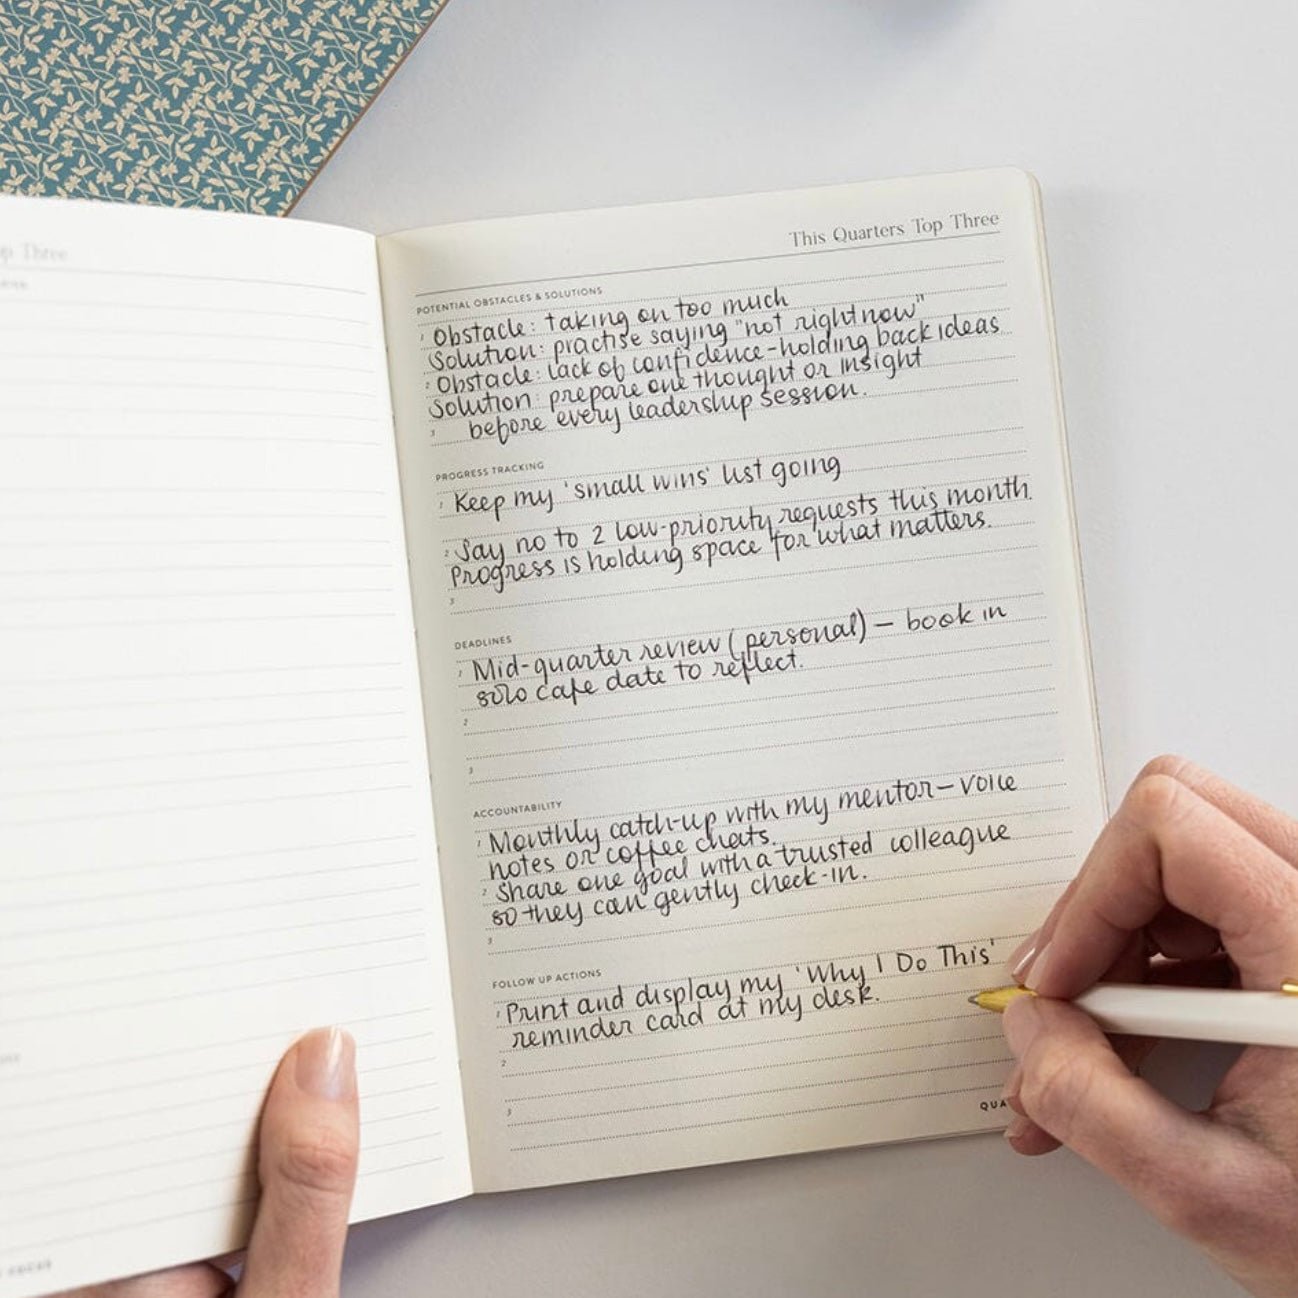 This Quarters Top Three
POTENTIAL OBSTACLES & SOLUTIONS
1 Obstacle: taking on too much
Solution: practise saying "not right now"
2 Obstacle: lack of confidence - holding back ideas
Solution: prepare one thought or insight
3 before every leadership session.
PROGRESS TRACKING
1 Keep my 'small wins' list going
2 Say no to 2 low-priority requests this month.
Progress is holding space for what matters.
3
DEADLINES
1 Mid-quarter review (personal) – book in
solo cafe date to reflect.
2
3
ACCOUNTABILITY
1 Monthly catch-up with my mentor – voice
notes or coffee chats.
2 Share one goal with a trusted colleague
so they can gently check-in.
3
FOLLOW UP ACTIONS
1 Print and display my 'Why I Do This'
reminder card at my desk.
2
3
QUA
Three
FOCUS